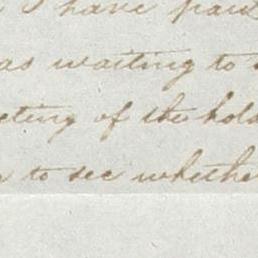 I have paid
as waiting to
eting of the hold
to see whethe